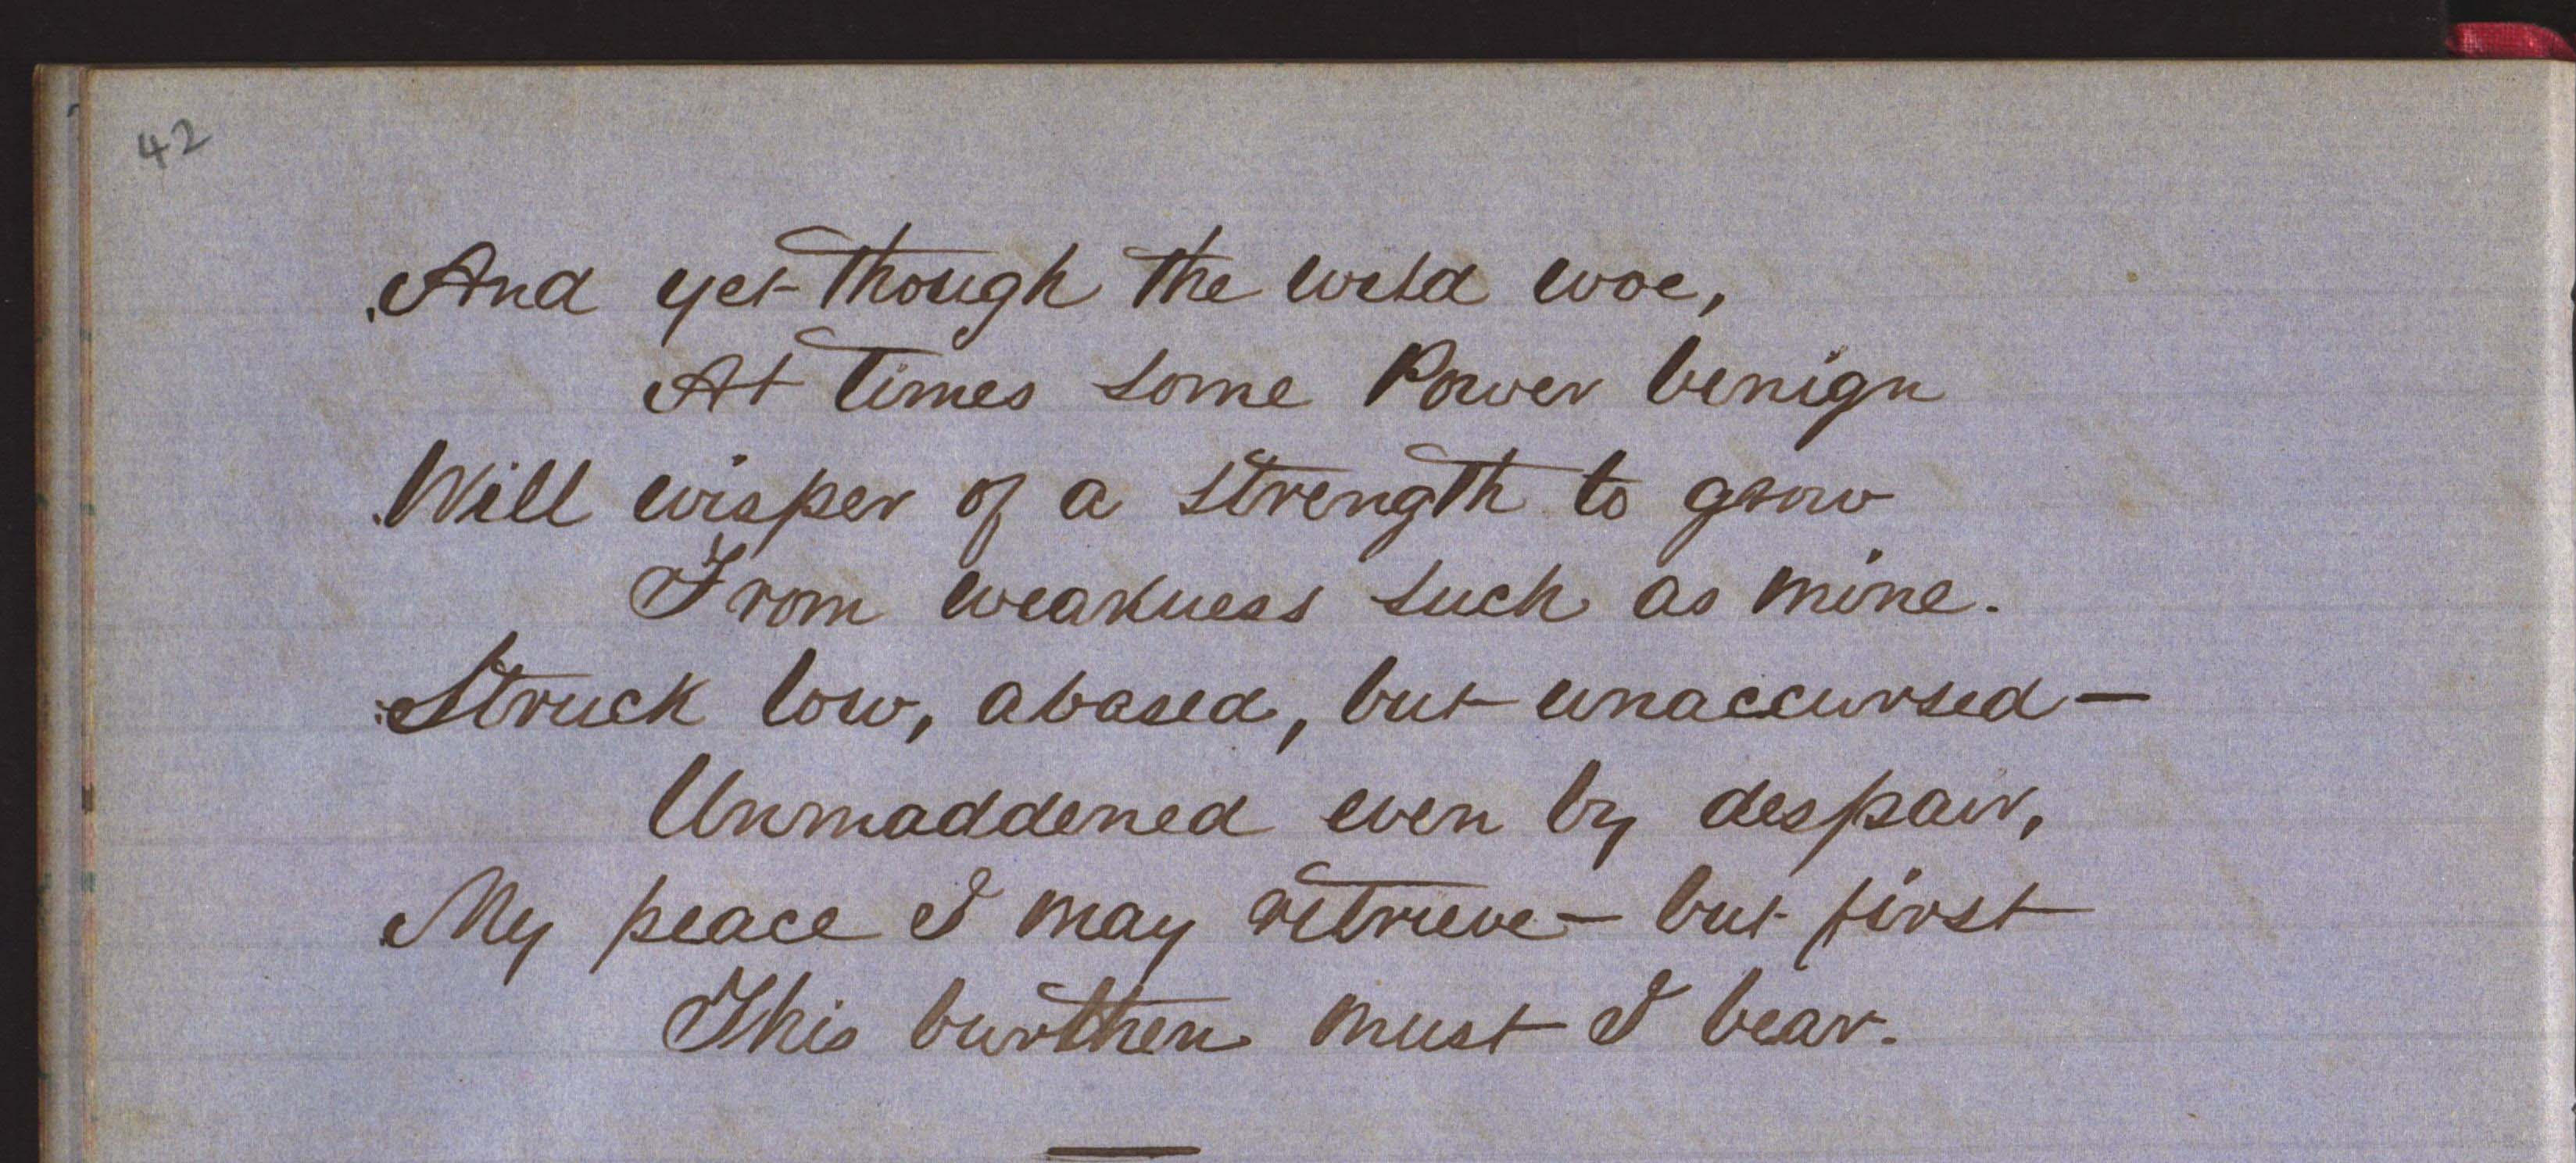 42
And yet though the wild woe,
At times some Power benign
Will wisper of a strength to grow
From weakness such as mine.
Struck low, abased, but unaccursed —
Unmaddened even by despair,
My peace I may retrieve — but first
This burthen must I bear.